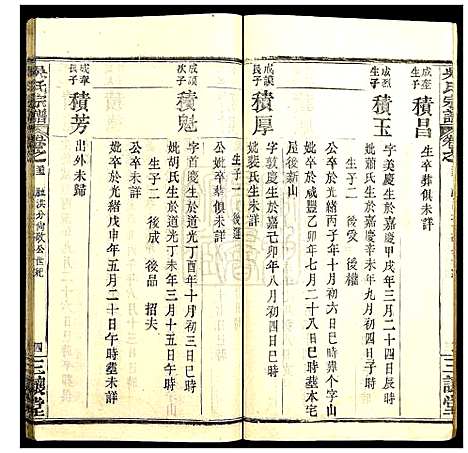 吳氏宗譜
成奎長子
積昌
生卒葬俱未詳
成烈生子
積玉
字美慶生於嘉慶甲戌年三月二十四日辰時
公卒於光緒丙子年十月初六日巳時葬个字山
妣蕭氏生於嘉慶辛未年九月初三日戌時
妣卒於咸豐乙卯年七月二十八日巳時塟本宅
屋後新山
生子二 後受 後權
成謨長子
積厚
字敦慶生於嘉慶己卯年八月初四日巳時
妣裴氏生未詳
公妣卒葬俱未詳
生子一 後進
成謨次子
積魁
字首慶生於道光丁亥年十月初四日子時
妣胡氏生於道光丁未年三月十五日午時
公卒未詳
妣卒於光緒戊申年五月二十日午時塟未詳
生子二 後成 後品 招夫
成奉長子
積芳
出外未歸
吳氏宗譜
卷之
四
三讓堂